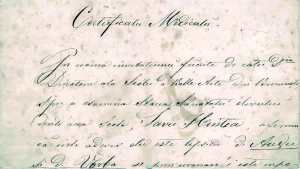 Certificatu Medicalu.
In urma invitatiunei facute de catre Dnu
Directoru alu Scolei de Belle Arte din Bucuresci
spre a esamina starea sanatatei elevului
dintr'acea Scola, Savu Hentea
ca intr'adeveru che este lipsitu de Auzu
si de Vorba